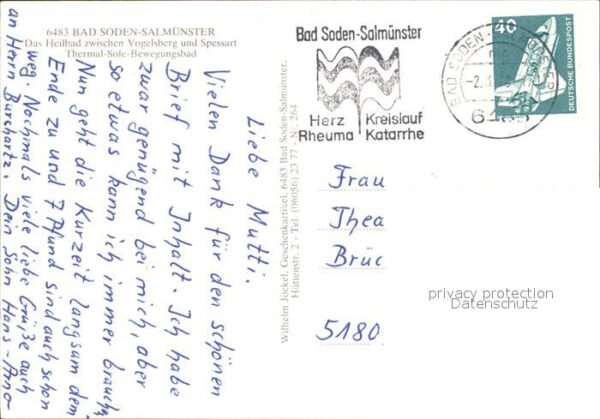 6483 BAD SODEN-SALMÜNSTER
Das Heilbad zwischen Vogelsberg und Spessart
Thermal-Sole-Bewegungsbad
Liebe Mutti.
Vielen Dank für den schönen
Brief mit Inhalt. Ich habe
zwar genügend bei mich, aber
so etwas kann ich immer brauchen
Nun geht die Kurzeit langsam dem
Ende zu und 7 Pfund sind auch schon
weg. Nochmals viele liebe Grüße auch
an Herrn Burchartz. Dein Sohn Hans-Arno
Wilhelm Jöckel, Geschenkartikel, 6483 Bad Soden-Salmünster,
Hüttenstr. 2 - Tel. (06056) 23 77 - Nr. 264
Bad Soden-Salmünster
Herz Kreislauf
Rheuma Katarrhe
BAD SODEN-
40
DEUTSCHE BUNDESPOST
Frau
Thea
Brüc
5180
privacy protection
Datenschutz